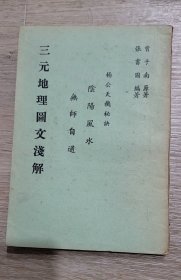 曾子南 原著
張書國 編著
楊公天機秘訣
陰陽風水
無師自通
三元地理圖文淺解